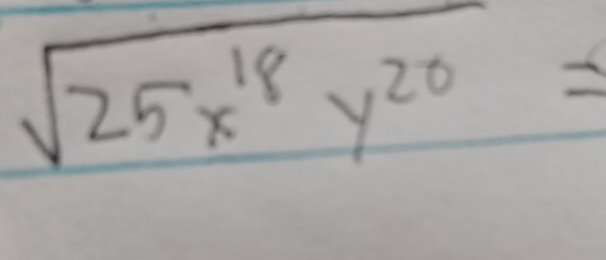 √25x¹⁸ y²⁰ =